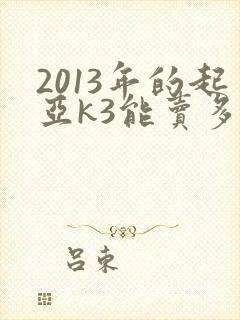 2013年的起
亚k3能卖多
吕束